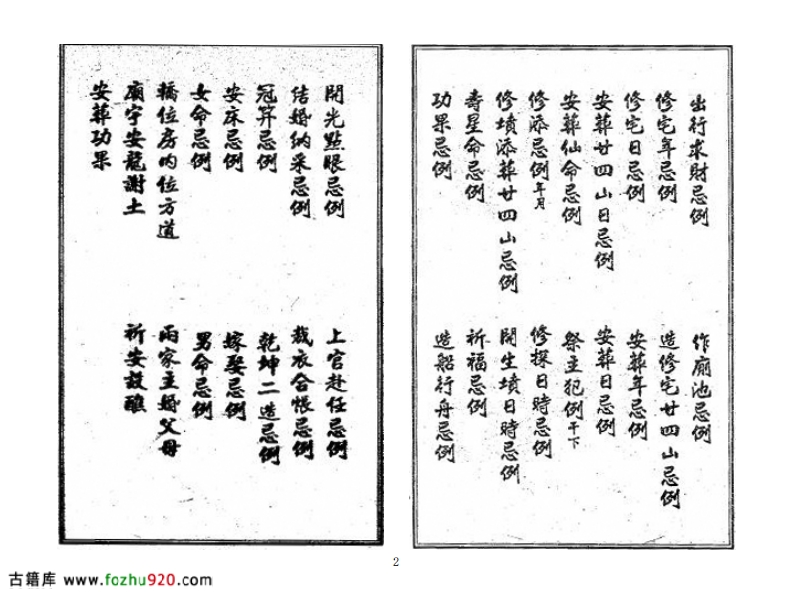 出行求財忌例
作廁池忌例
修宅年忌例
造修宅廿四山忌例
修宅日忌例
安葬年忌例
安葬廿四山日忌例
安葬日忌例
安葬仙命忌例
祭主犯例干下
修添忌例年月
修探日時忌例
修墳添葬廿四山忌例
開生墳日時忌例
壽星命忌例
祈福忌例
功果忌例
造船行舟忌例
開光點眼忌例
上官赴任忌例
結婚納采忌例
裁衣合帳忌例
冠笄忌例
乾坤二造忌例
安床忌例
嫁娶忌例
女命忌例
男命忌例
轎位房的位方道
兩家主婚父母
廟宇安龍謝土
祈安設醮
安葬功果
2
古籍库 www.fozhu920.com